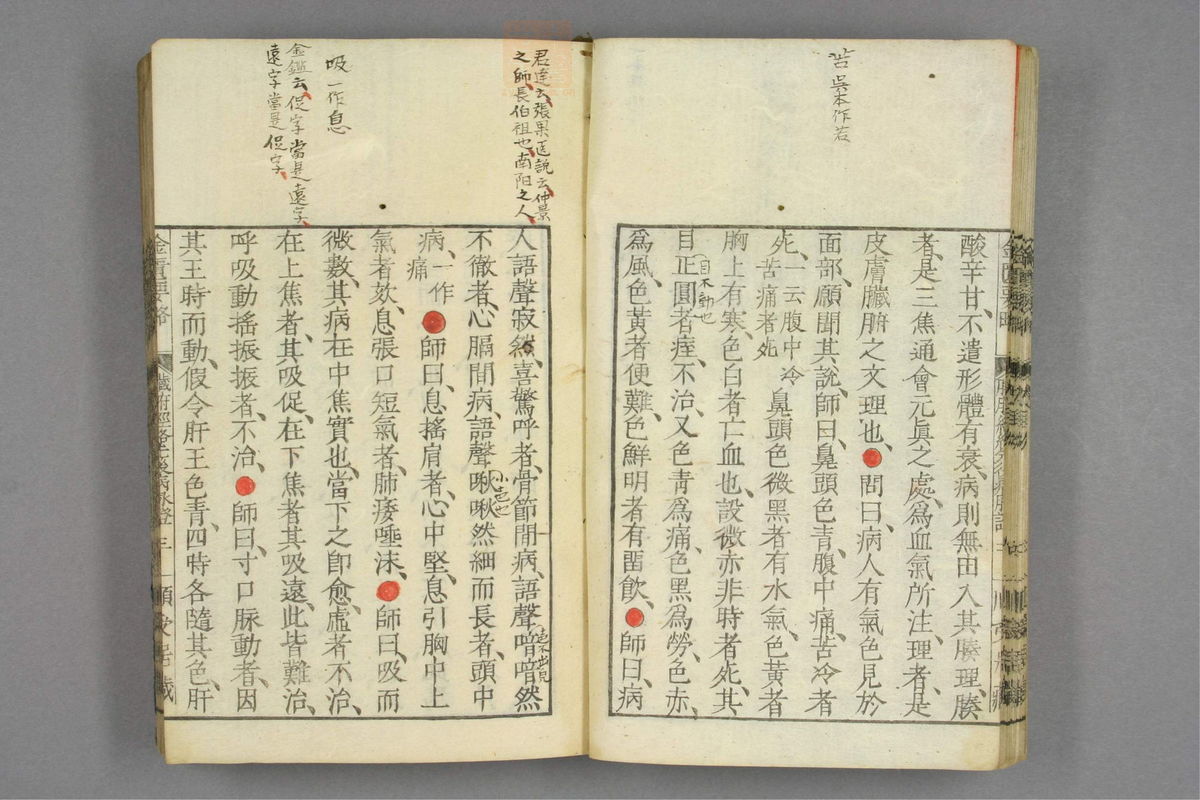 苦吳本作若
酸辛甘、不遣形體有衰、病則無由入其腠理、腠
者、是三焦通會元眞之處、爲血氣所注、理者是
皮膚臟腑之文理也、●問曰、病人有氣色見於
面部、願聞其說、師曰、鼻頭色青、腹中痛、苦冷者
死、一云腹中冷苦痛者死 鼻頭色微黑者有水氣、色黃者
胸上有寒、色白者亡血也、設微赤非時者死、其
目正圓者痓、不治、又色青爲痛、色黑爲勞、色赤
爲風、色黃者便難、色鮮明者有畱飮、●師曰、病
目不動也
君達云、張杲医說云、仲景
之師、張伯祖也、南阳之人、
吸一作息
金鑑云、促字當是遠字、
遠字當是促字、
人語聲寂然、喜驚呼者、骨節間病、語聲喑喑然
不徹者、心膈間病、語聲啾啾然細而長者、頭中
病、一作痛 ●師曰、息搖肩者、心中堅、息引胸中上
氣者欬、息張口短氣者、肺痿唾沫、●師曰、吸而
微數、其病在中焦實也、當下之卽愈、虛者不治、
在上焦者、其吸促、在下焦者其吸遠、此皆難治、
呼吸動搖振振者、不治、●師曰、寸口脉動者、因
其王時而動、假令肝王色青、四時各隨其色、肝
小色也
金匱要略 臓腑經絡先後病脉證 三